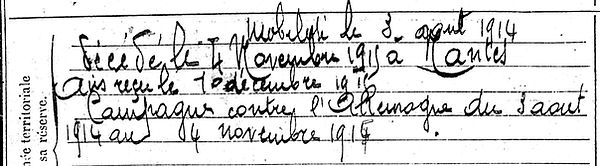 Mobilisé le 3 aout 1914
Décédé le 4 Novembre 1915 à Nantes
Avis reçu le 10 décembre 191
Campagne contre l'Allemagne du 3 aout
1914 au 4 novembre 191
re territoriale
sa réserve.